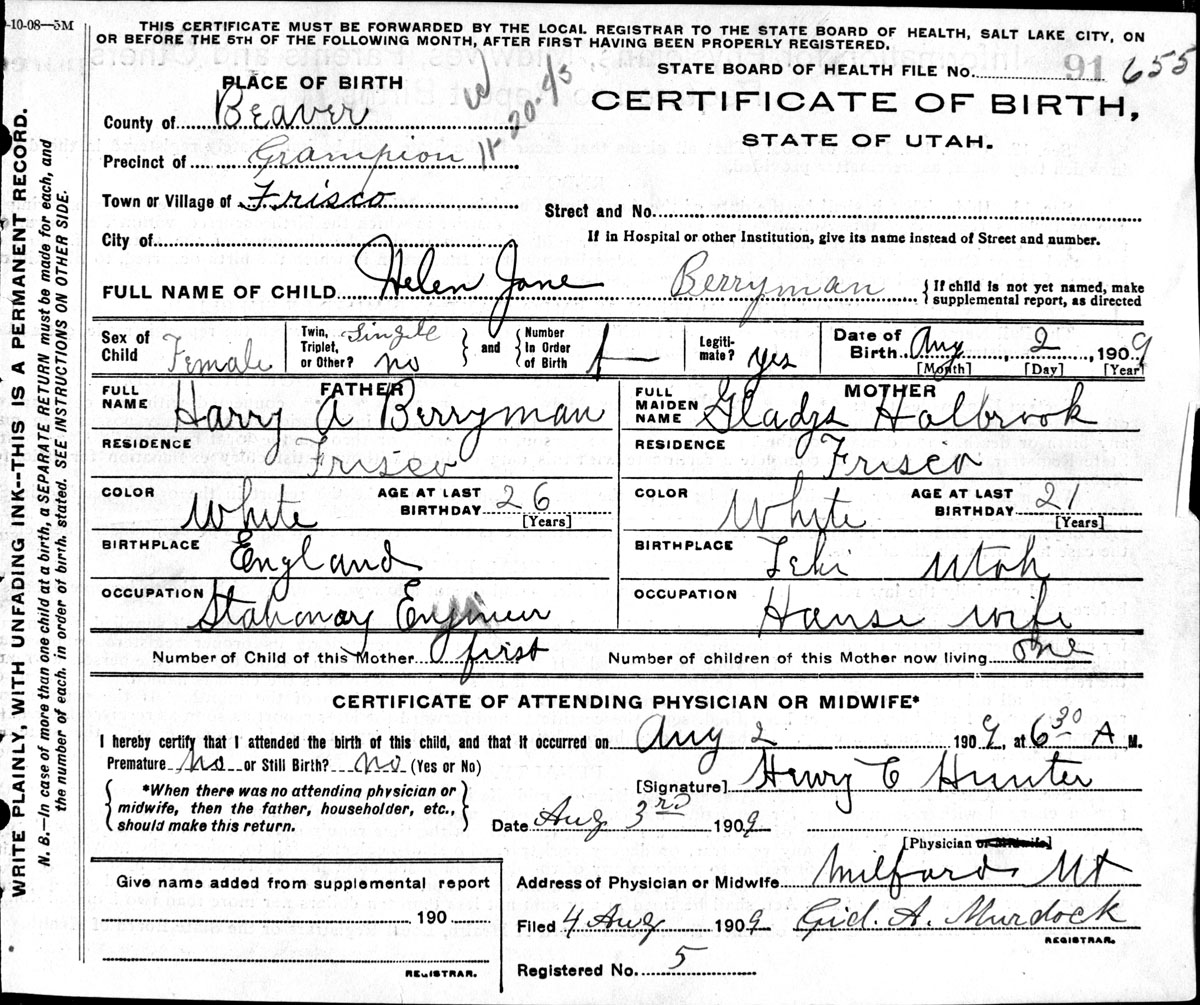 9-10-08—5M
THIS CERTIFICATE MUST BE FORWARDED BY THE LOCAL REGISTRAR TO THE STATE BOARD OF HEALTH, SALT LAKE CITY, ON
OR BEFORE THE 5TH OF THE FOLLOWING MONTH, AFTER FIRST HAVING BEEN PROPERLY REGISTERED.
WRITE PLAINLY, WITH UNFADING INK--THIS IS A PERMANENT RECORD.
N. B.—In case of more than one child at a birth, a SEPARATE RETURN must be made for each, and
the number of each, in order of birth, stated. SEE INSTRUCTIONS ON OTHER SIDE.
STATE BOARD OF HEALTH FILE No. 91 655
PLACE OF BIRTH
CERTIFICATE OF BIRTH,
STATE OF UTAH.
County of Beaver
Precinct of Grampion
Town or Village of Frisco
Street and No.
City of
If in Hospital or other Institution, give its name instead of Street and number.
FULL NAME OF CHILD Helen Jane Berryman {If child is not yet named, make supplemental report, as directed
Sex of Child Female
Twin, Triplet, or Other? Single no and Number In Order of Birth 1
Legitimate? yes
Date of Birth Aug, 2, 1909
[Month] [Day] [Year]
FATHER
FULL NAME Harry A Berryman
RESIDENCE Frisco
COLOR White AGE AT LAST BIRTHDAY 26 [Years]
BIRTHPLACE England
OCCUPATION Stationary Engineer
MOTHER
FULL MAIDEN NAME Gladys Holbrook
RESIDENCE Frisco
COLOR White AGE AT LAST BIRTHDAY 21 [Years]
BIRTHPLACE Lehi Utah
OCCUPATION House wife
Number of Child of this Mother first Number of children of this Mother now living one
CERTIFICATE OF ATTENDING PHYSICIAN OR MIDWIFE*
I hereby certify that I attended the birth of this child, and that it occurred on Aug 2 1909, at 6 30 A M.
Premature No or Still Birth? No (Yes or No)
{*When there was no attending physician or midwife, then the father, householder, etc., should make this return.}
[Signature] Henry C Hunter
Date Aug 3rd 1909
[Physician or Midwife]
Address of Physician or Midwife Milford Ut
Filed 4 Aug 1909 Gid. A. Murdock
REGISTRAR.
Registered No. 5
Give name added from supplemental report
190
REGISTRAR.